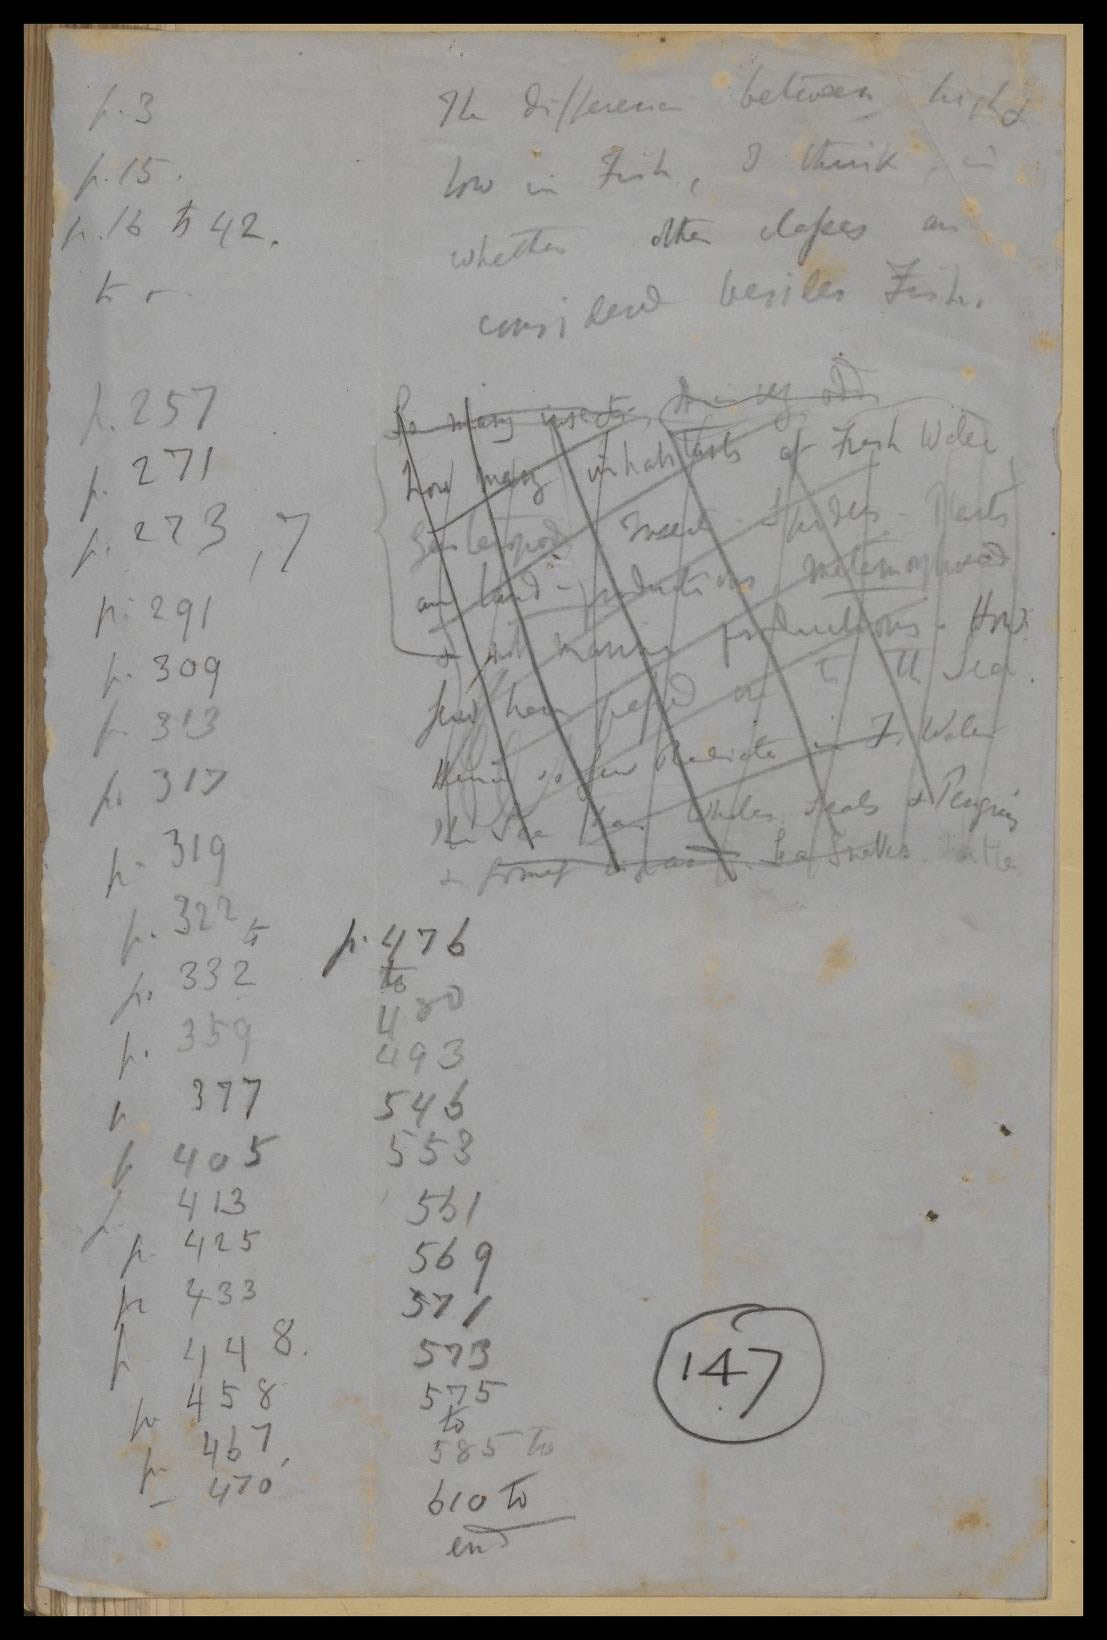 p. 3
p. 15.
p. 16 to 42.
to
The difference between high &
low in Fish, I think, is
whether other classes are
considered besides Fish.
p. 257
p. 271
p. 273, 7
p. 291
p. 309
p. 313
p. 317
p. 319
p. 322 to
p. 332
p. 359
p 377
p 405
413
p. 425
p. 433
p 448.
p. 458
467,
p. 470
So many insects,
How many inhabitants of Fresh Water
Gasteropods Insects – Spiders – Plants
are land-productions metamorphosed
& not marine productions – How
few have passed to the Sea.
Hence so few Radiata in F. Water
The Sea has Whales, Seals & Penguins
& Sea Snakes Turtle
p. 476
to
480
493
546
553
561
569
571
573
575
to
585 to
610 to
end
147